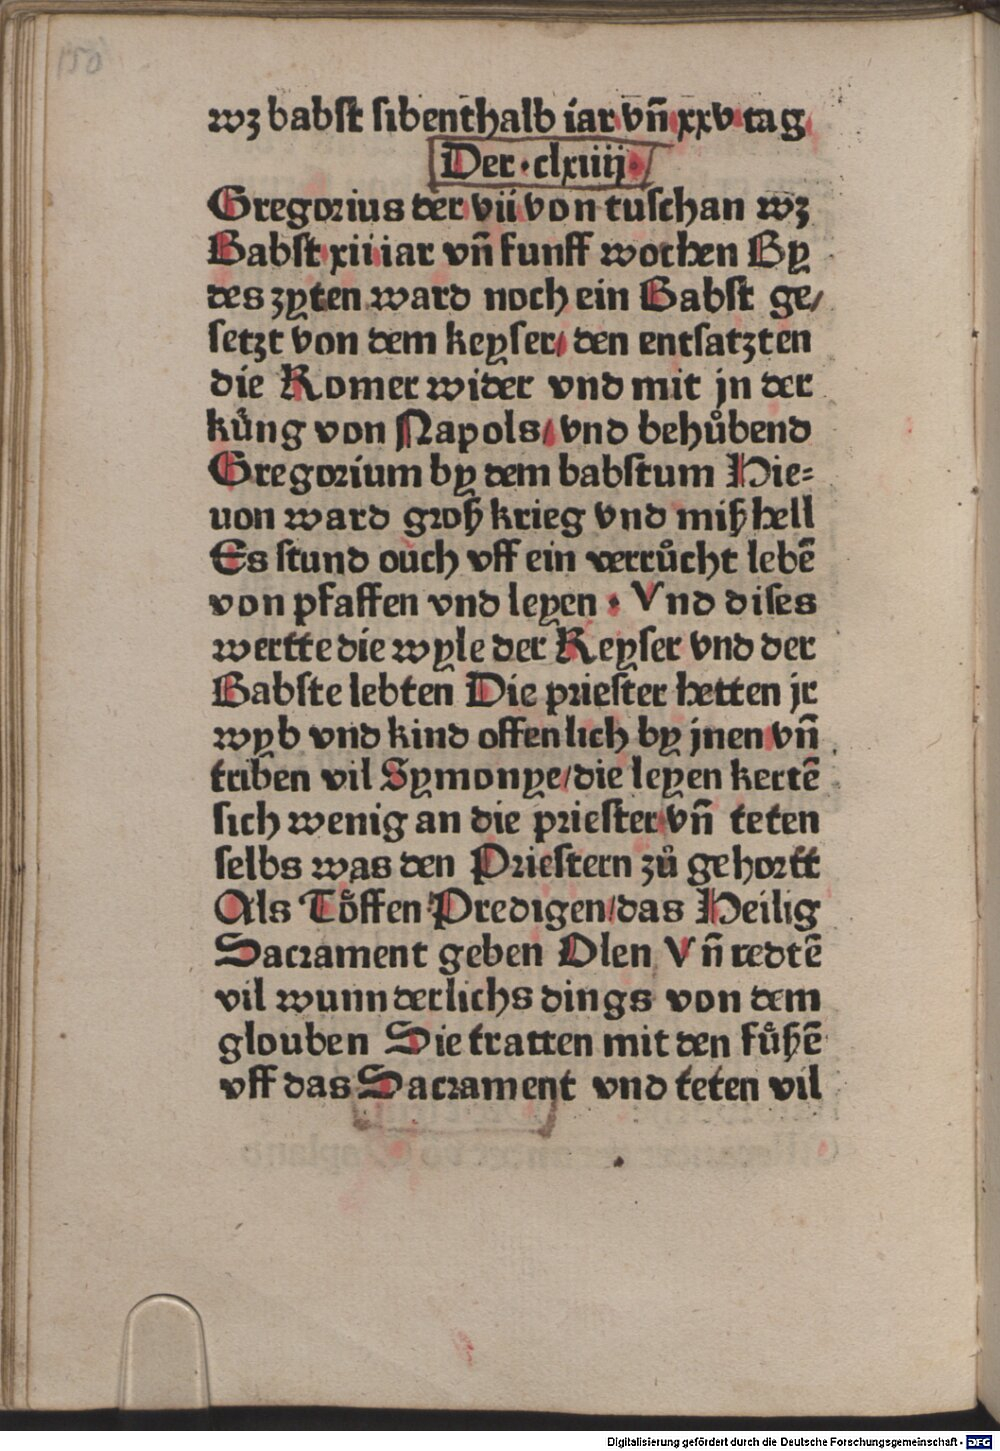 150
wȝ babst sibenthalb iar vñ xxv tag
Der · clxiiij ·
Gregorius der vii von tuschan wȝ
Babst xii iar vñ funff wochen By
des zyten ward noch ein Babst ge/
setzt von dem keyser/ den entsatzten
die Romer wider vnd mit jn der
kuͤng von Napols/ vnd behuͦbend
Gregorium by dem babstum Hie=
uon ward groß krieg vnd mißhell
Es stund ouch vff ein verruͦcht lebē
von pfaffen vnd leyen · Vnd dises
wertte die wyle der Keyser vnd der
Babste lebten Die priester hetten jr
wyb vnd kind offenlich by jnen vñ
triben vil Symonye/die leyen kertē
sich wenig an die priester vñ teten
selbs was den Priestern zuͦ gehortt
Als Toͤffen Predigen/das Heilig
Sacrament geben Olen Vñ redtē
vil wunnderlichs dings von dem
glouben Sie tratten mit den fuͤßē
vff das Sacrament vnd teten vil
Digitalisierung gefördert durch die Deutsche Forschungsgemeinschaft - DFG